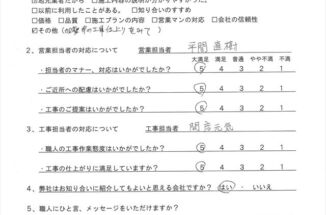 □以前に利用したことがある。 □知り合いのすすめ
□価格 □品質 □施工プランの内容 □営業マンの対応 □会社の信頼性
その他(
2、営業担当者の対応について 営業担当者 平間 直樹
大満足 満足 普通 やや不満 不満
・担当者のマナー、対応はいかがでしたか? 5 4 3 2 1
・ご近所への配慮はいかがでしたか? 5 4 3 2 1
・工事のご提案はいかがでしたか? 5 4 3 2 1
3、工事担当者の対応について 工事担当者 元気
・職人の工事作業態度はいかがでしたか? 5 4 3 2 1
・工事の仕上がりに満足していますか? 5 4 3 2 1
4、弊社はお知り合いに紹介してもよいと思える会社ですか? はい ・ いいえ
5、職人にひと言、メッセージをいただけますか?